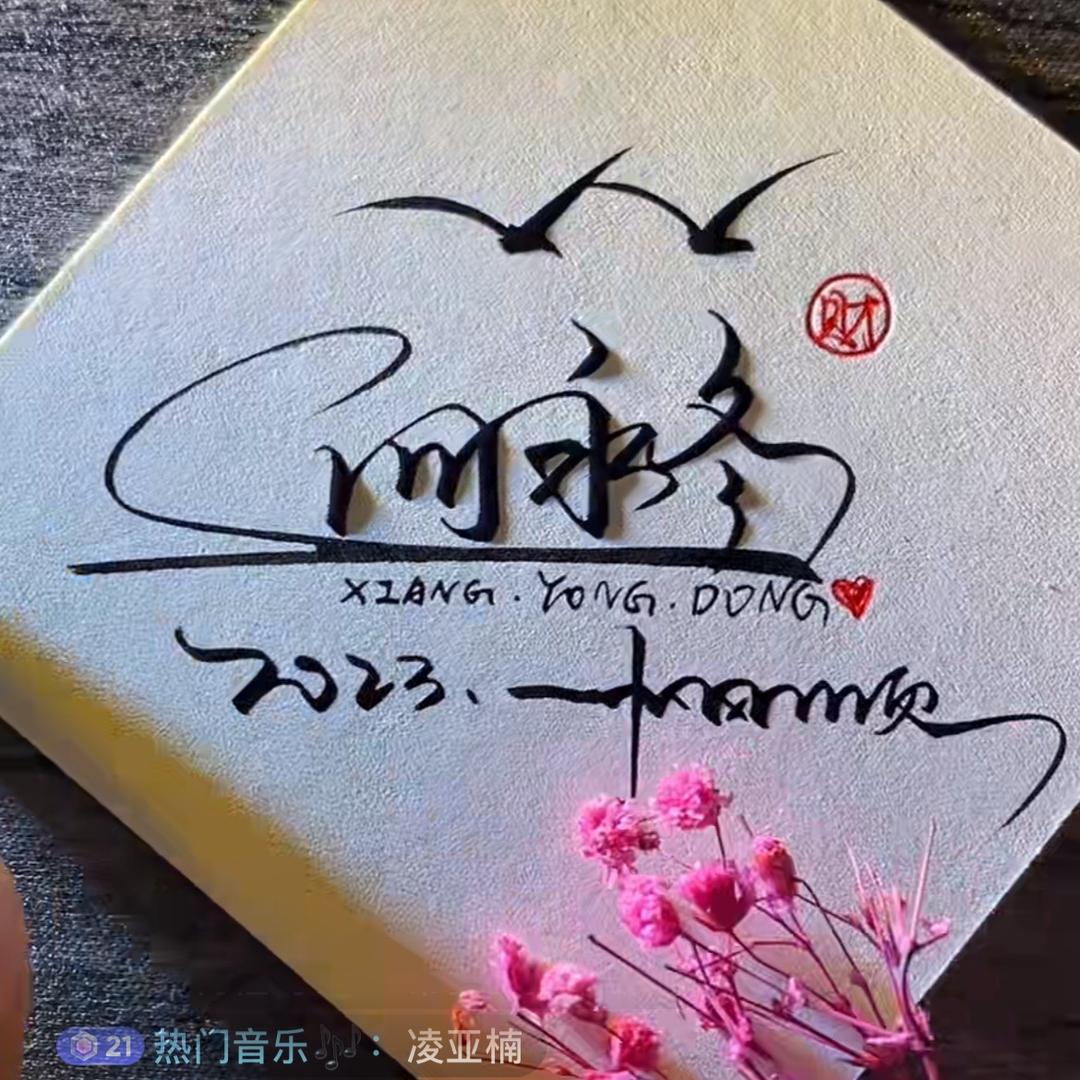 财
向永冬
XIANG.YONG.DONG
2023、一帆风顺
21 热门音乐：凌亚楠